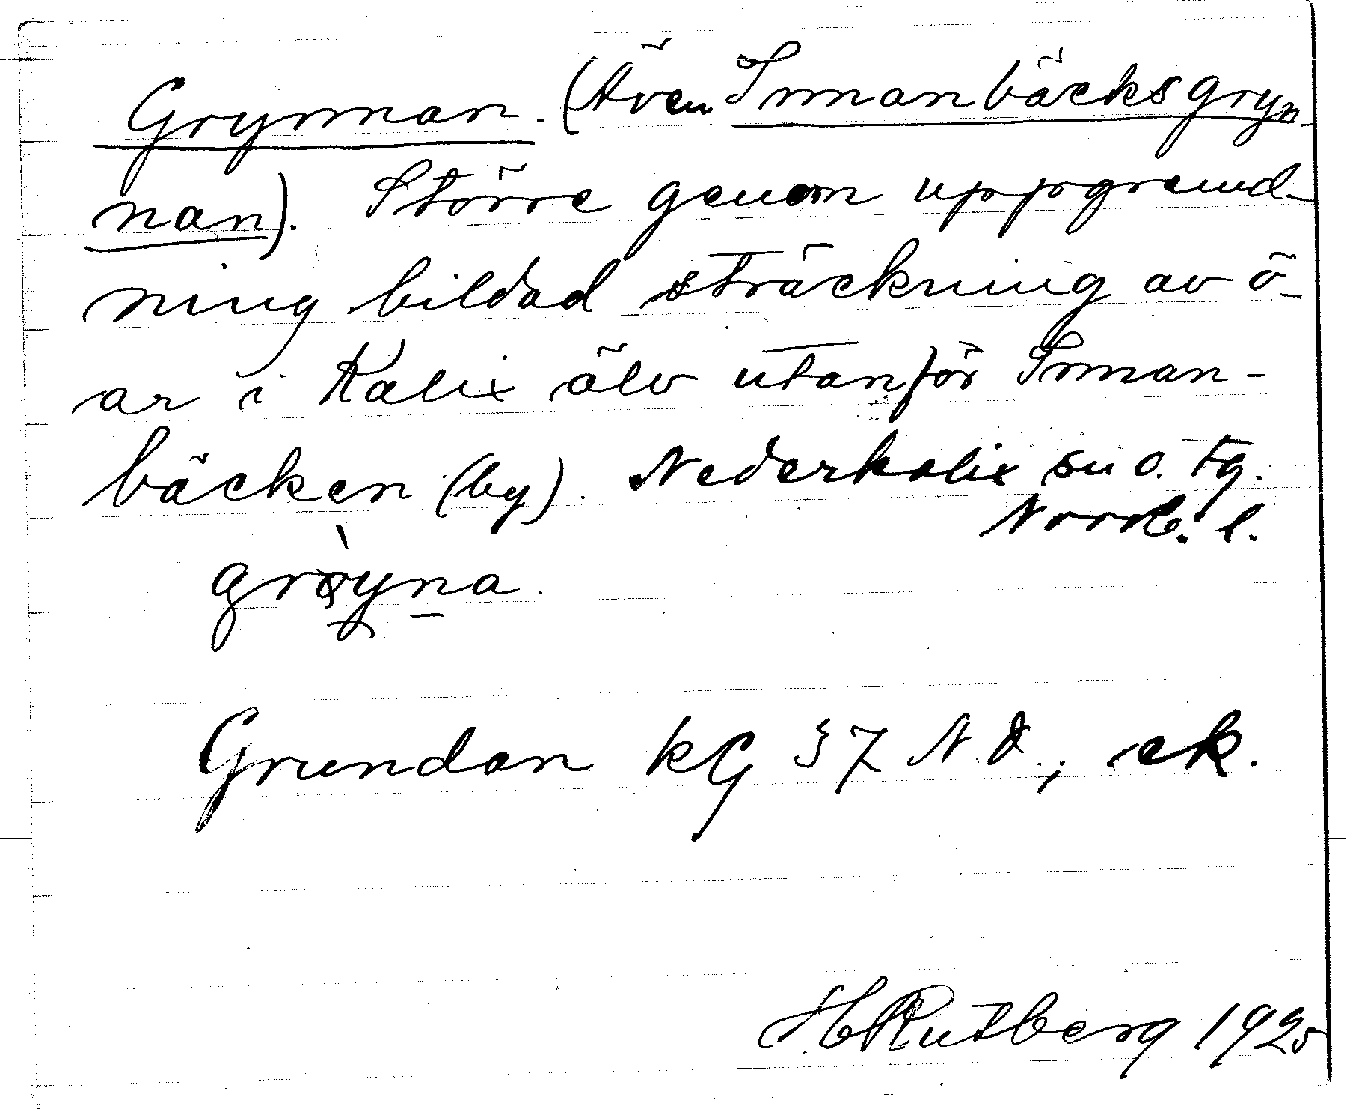 Grynnan. (Även Innanbäcksgryn-
nan). Större genom uppgrund-
ning bildad sträckning av ö-
ar i Kalix älv utanför Innan-
bäcken (by). Nederkalix sn o. tg.
Norrb. l.
gròyna.
Grundan kG 37 N.O, ek.
H Rutberg 1925